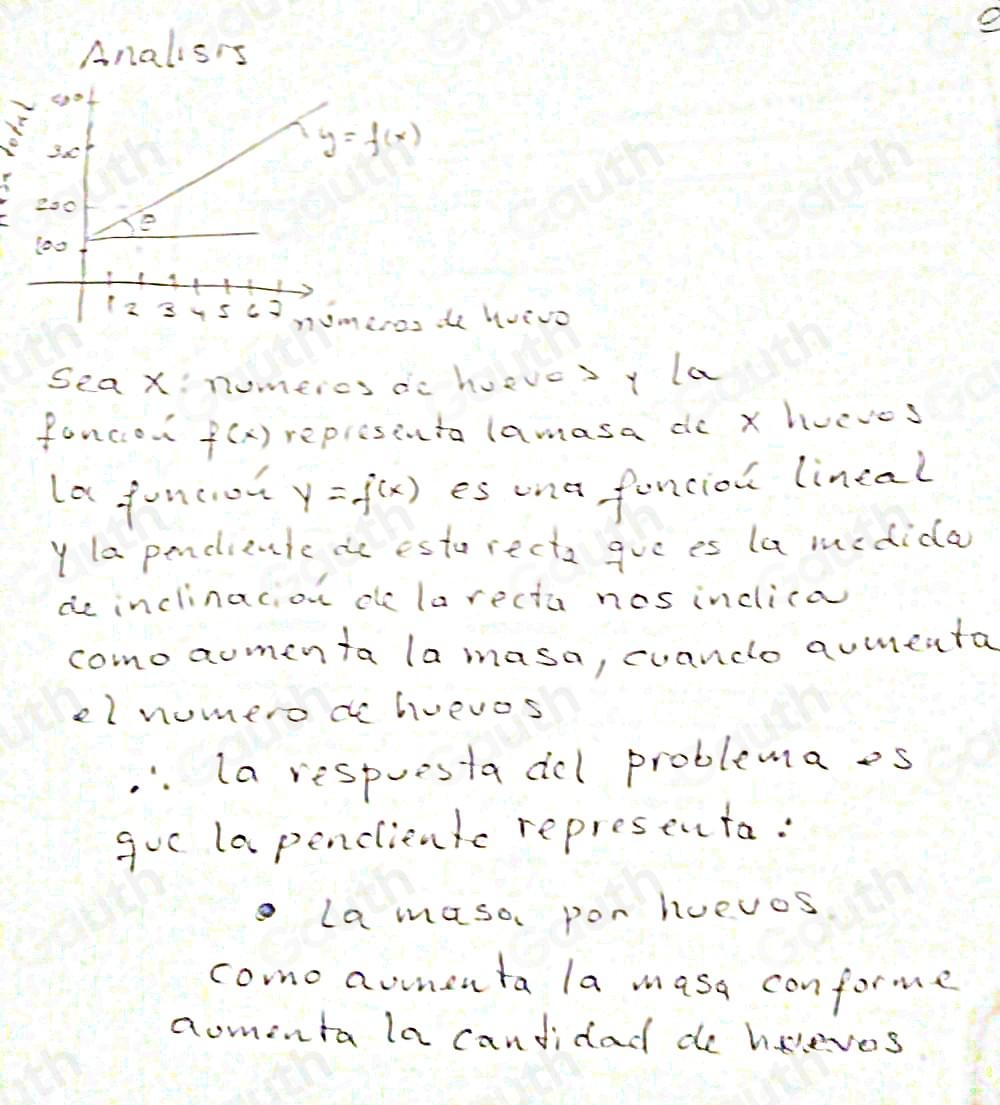 Analisis
400
300
200
100
y = f(x)
θ
1 2 3 4 5 6 7
números de huevo
Sea X: numeros de huevos y la
función f(x) representa la masa de x huevos
La función y = f(x) es una función lineal
y la pendiente de esta recta que es la medida
de inclinación de la recta nos indica
como aumenta la masa, cuando aumenta
el numero de huevos
∴ la respuesta del problema es
que la pendiente representa:
• La masa por huevos.
como aumenta la masa conforme
aumenta la cantidad de huevos.
Gauth